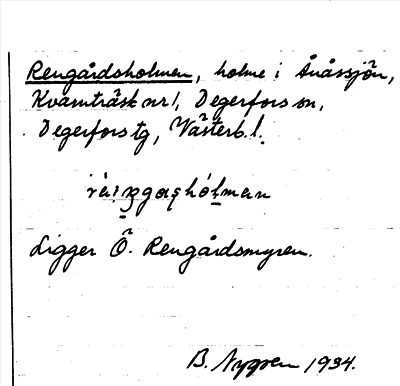 Rengårdsholmen, holme i Ånåssjön,
Kvarnträsk nr 1, Degerfors sn,
Degerfors tg, Västerb. l.
Ligger Ö. Rengårdsmyren.
B. Nygren 1934.